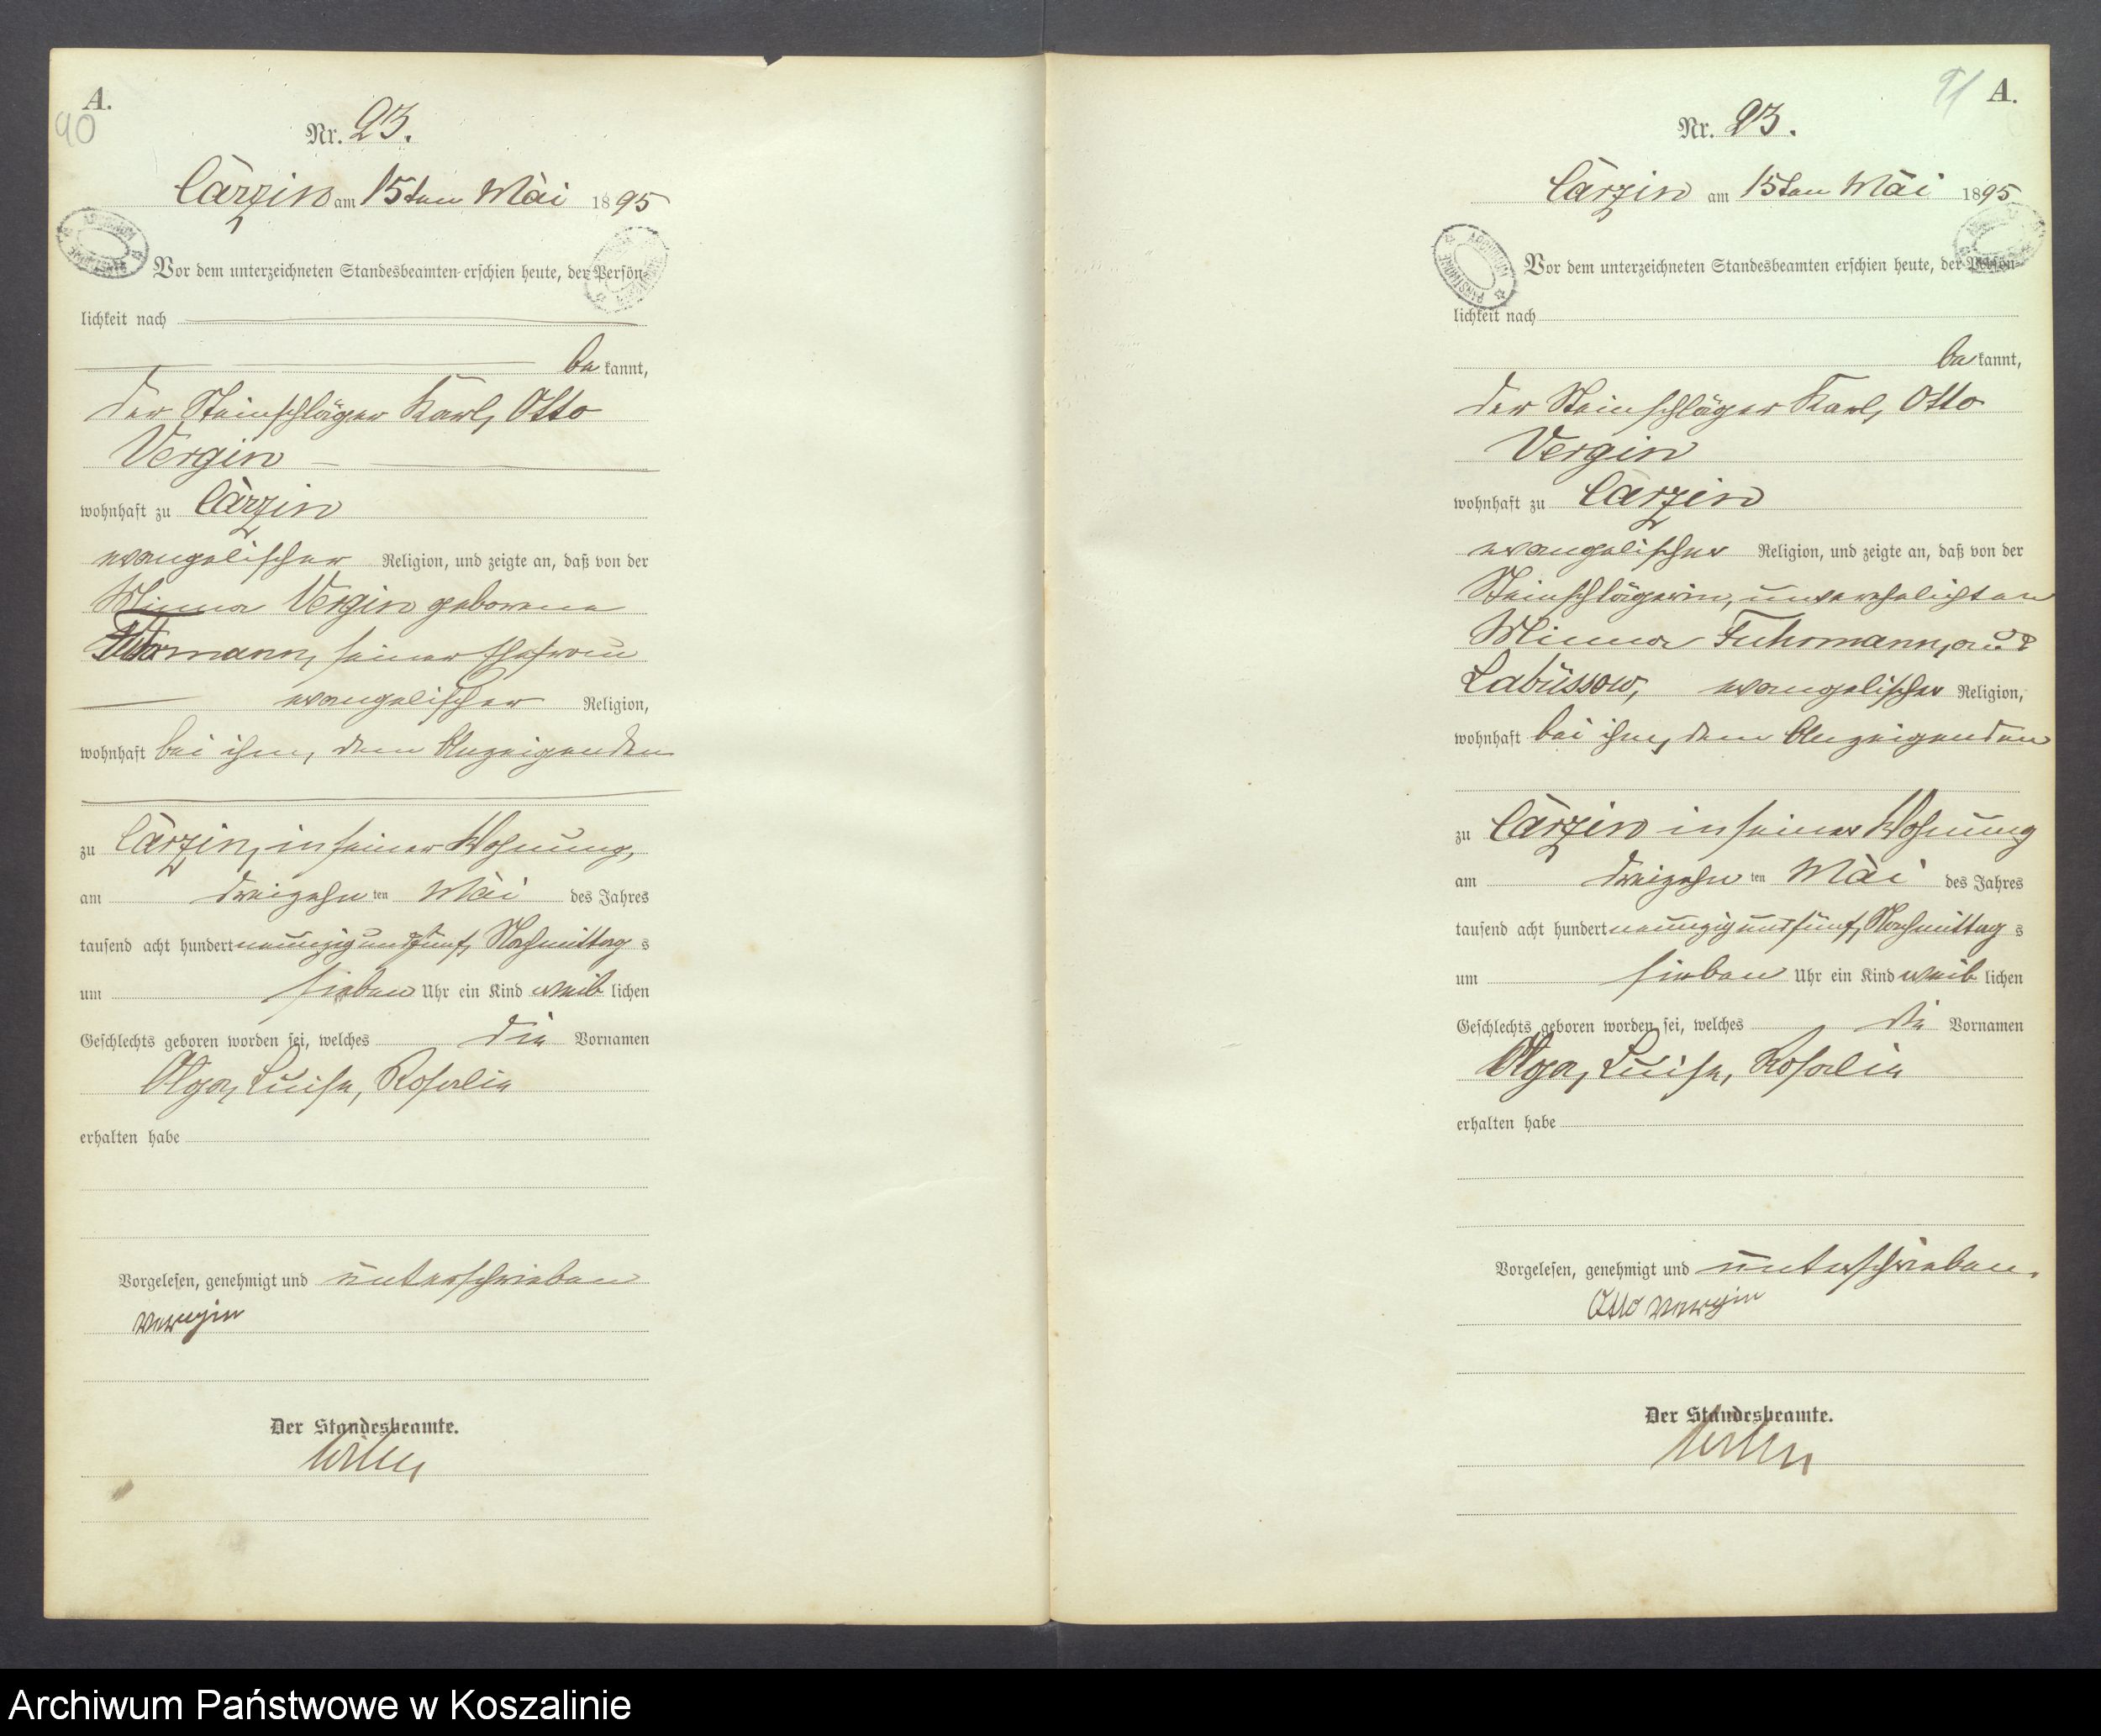 A.
90
Nr. 23.
Carzin am 15ten Mai 1895
Vor dem unterzeichneten Standesbeamten erschien heute, der Persön-
lichkeit nach
be kannt,
der Steinschläger Karl, Otto
Vergin
wohnhaft zu Carzin
evangelischer Religion, und zeigte an, daß von der
Minna Vergin geborene
Fuhrmann, seiner Ehefrau
evangelischer Religion,
wohnhaft bei ihm, dem Anzeigenden
zu Carzin, in seiner Wohnung,
am dreizehn ten Mai des Jahres
tausend acht hundert neunzig und fünf, Nachmittag s
um sieben Uhr ein Kind weib lichen
Geschlechts geboren worden sei, welches die Vornamen
Olga, Luise, Rosalie
erhalten habe
Vorgelesen, genehmigt und unterschrieben
Vergin
Der Standesbeamte.
91 A.
Nr. 23.
Carzin am 15ten Mai 1895
Vor dem unterzeichneten Standesbeamten erschien heute, der Persön-
lichkeit nach
be kannt,
der Steinschläger Karl, Otto
Vergin
wohnhaft zu Carzin
evangelischer Religion, und zeigte an, daß von der
Steinschlägerin, unverehelichten
Minna Fuhrmann, aus
Labüssow, evangelischer Religion,
wohnhaft bei ihm, dem Anzeigenden
zu Carzin in seiner Wohnung
am dreizehn ten Mai des Jahres
tausend acht hundert neunzig und fünf, Nachmittag s
um sieben Uhr ein Kind weib lichen
Geschlechts geboren worden sei, welches die Vornamen
Olga, Luise, Rosalie
erhalten habe
Vorgelesen, genehmigt und unterschrieben.
Otto Vergin
Der Standesbeamte.
Archiwum Państwowe w Koszalinie